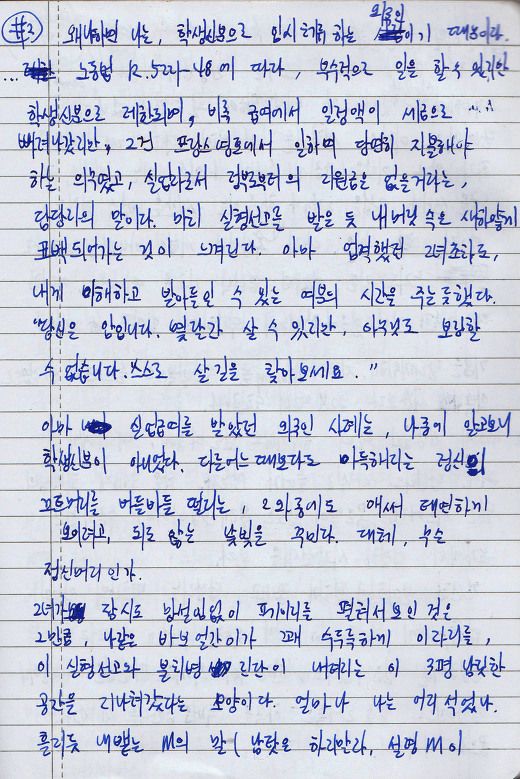 #3
왜냐하면 나는, 학생신분으로 임시체류하는 외국인이기 때문이다.
... 노동법 R.5221-48에 따라, 부수적으로 일을 할 수 있지만
학생신분으로 제한되며, 비록 급여에서 일정액이 세금으로
빠져나갔지만, 그건 프랑스 영토에서 일하며 당연히 지불해야
하는 의무였고, 실업자로서 정부로부터의 지원금은 없을거라는,
담당자의 말이다. 마치 실형선고를 받은 듯 내 머릿속은 새하얗게
표백되어가는 것이 느껴진다. 아마 업적했던 그녀조차도,
내게 이해하고 받아들일 수 있는 여분의 시간을 주는듯했다.
"당신은 암입니다. 몇달간 살 수 있지만, 아무것도 보장할
수 없습니다. 스스로 살길을 찾아보세요."
아마 실업급여를 받았던 외국인 사례는, 나중에 알고보니
학생신분이 아니었다. 다른어느때보다도 아득해지는 정신의
끄트머리를 버둥버둥 떨리는, 그 와중에도 애써 태연하게
보이려고, 되도 않는 낯빛을 꾸미다. 대체, 무슨
정신머리인가.
그녀가 잠시도 망설임없이 페이지를 펼쳐서 보인 것은
그만큼, 나같은 바보 얼간이가 꽤 수두룩하게 이 자리를,
이 실형선고와 불치병 진단이 내려지는 이 3평 남짓한
공간을 지나쳐갔다는 모양이다. 얼마나 나는 어리석었나.
흘리듯 내뱉는 M의 말( 남탓은 하지만라, 설명 M이